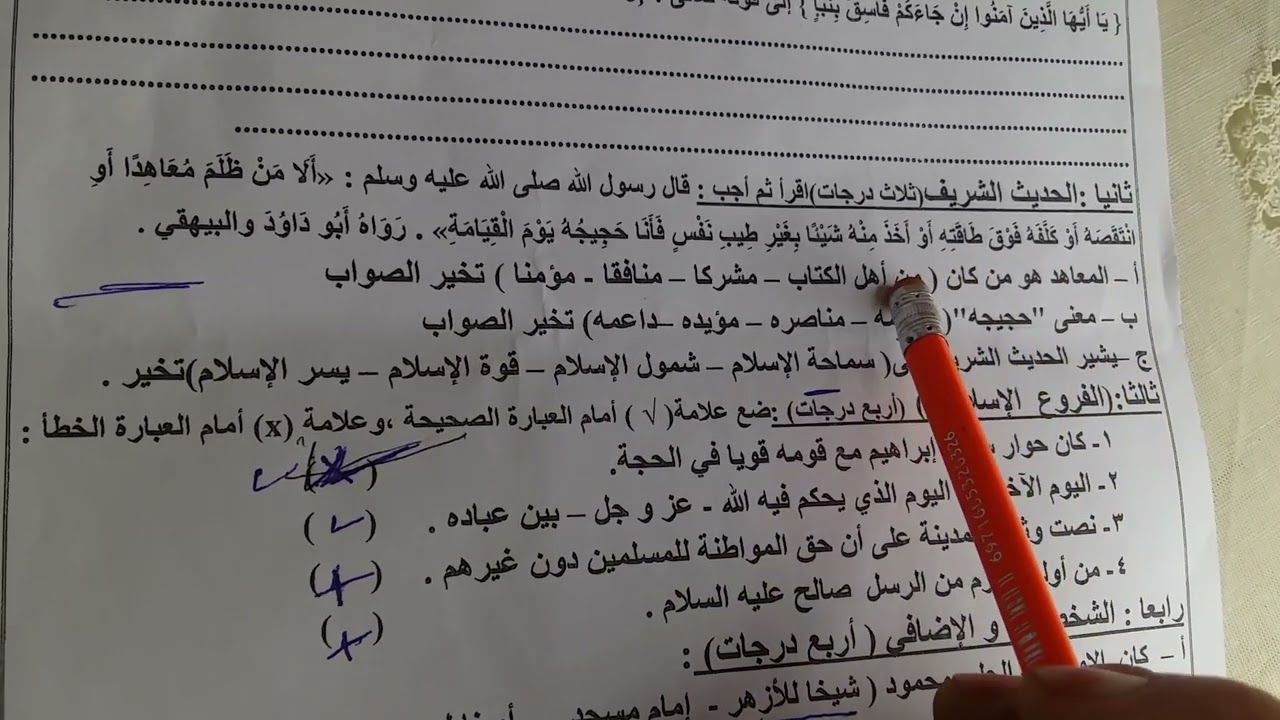 { يَا أَيُّهَا الَّذِينَ آمَنُوا إِنْ جَاءَكُمْ فَاسِقٌ بِنَبَإٍ } إلى
ثانيا :الحديث الشريف(ثلاث درجات)اقرأ ثم أجب : قال رسول الله صلى الله عليه وسلم : «أَلَا مَنْ ظَلَمَ مُعَاهِدًا أَوِ
انْتَقَصَهُ أَوْ كَلَّفَهُ فَوْقَ طَاقَتِهِ أَوْ أَخَذَ مِنْهُ شَيْئًا بِغَيْرِ طِيبِ نَفْسٍ فَأَنَا حَجِيجُهُ يَوْمَ الْقِيَامَةِ» . رَوَاهُ أَبُو دَاوُدَ والبيهقي .
أ – المعاهد هو من كان ( من أهل الكتاب – مشركا – منافقا - مؤمنا ) تخير الصواب
ب – معنى "حجيجه"( – مناصره – مؤيده –داعمه) تخير الصواب
ج –يشير الحديث ( سماحة الإسلام – شمول الإسلام – قوة الإسلام – يسر الإسلام)تخير .
ثالثا:(الفروع ) (أربع درجات) :ضع علامة( √ ) أمام العبارة الصحيحة ،وعلامة (x) أمام العبارة الخطأ :
١- كان حوار إبراهيم مع قومه قويا في الحجة. ( )
٢- اليوم اليوم الذي يحكم فيه الله - عز و جل – بين عباده . ( ✓ )
٣- نصت على أن حق المواطنة للمسلمين دون غيرهم . ( x )
٤- من من الرسل صالح عليه السلام . ( x )
رابعا : و الإضافي ( أربع درجات) :
أ – كان محمود ( شيخا للأزهر - إمام مسجد
6971655326326